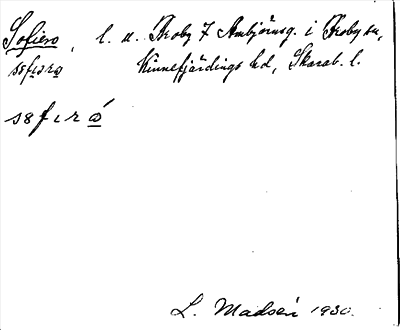 Sofiero, l. u. Broby 7 Ambjörnsg. i Broby sn,
sɛfiɛro Kinnefjärdings hd, Skarab. l.
s8fıró
L. Madsén 1930.